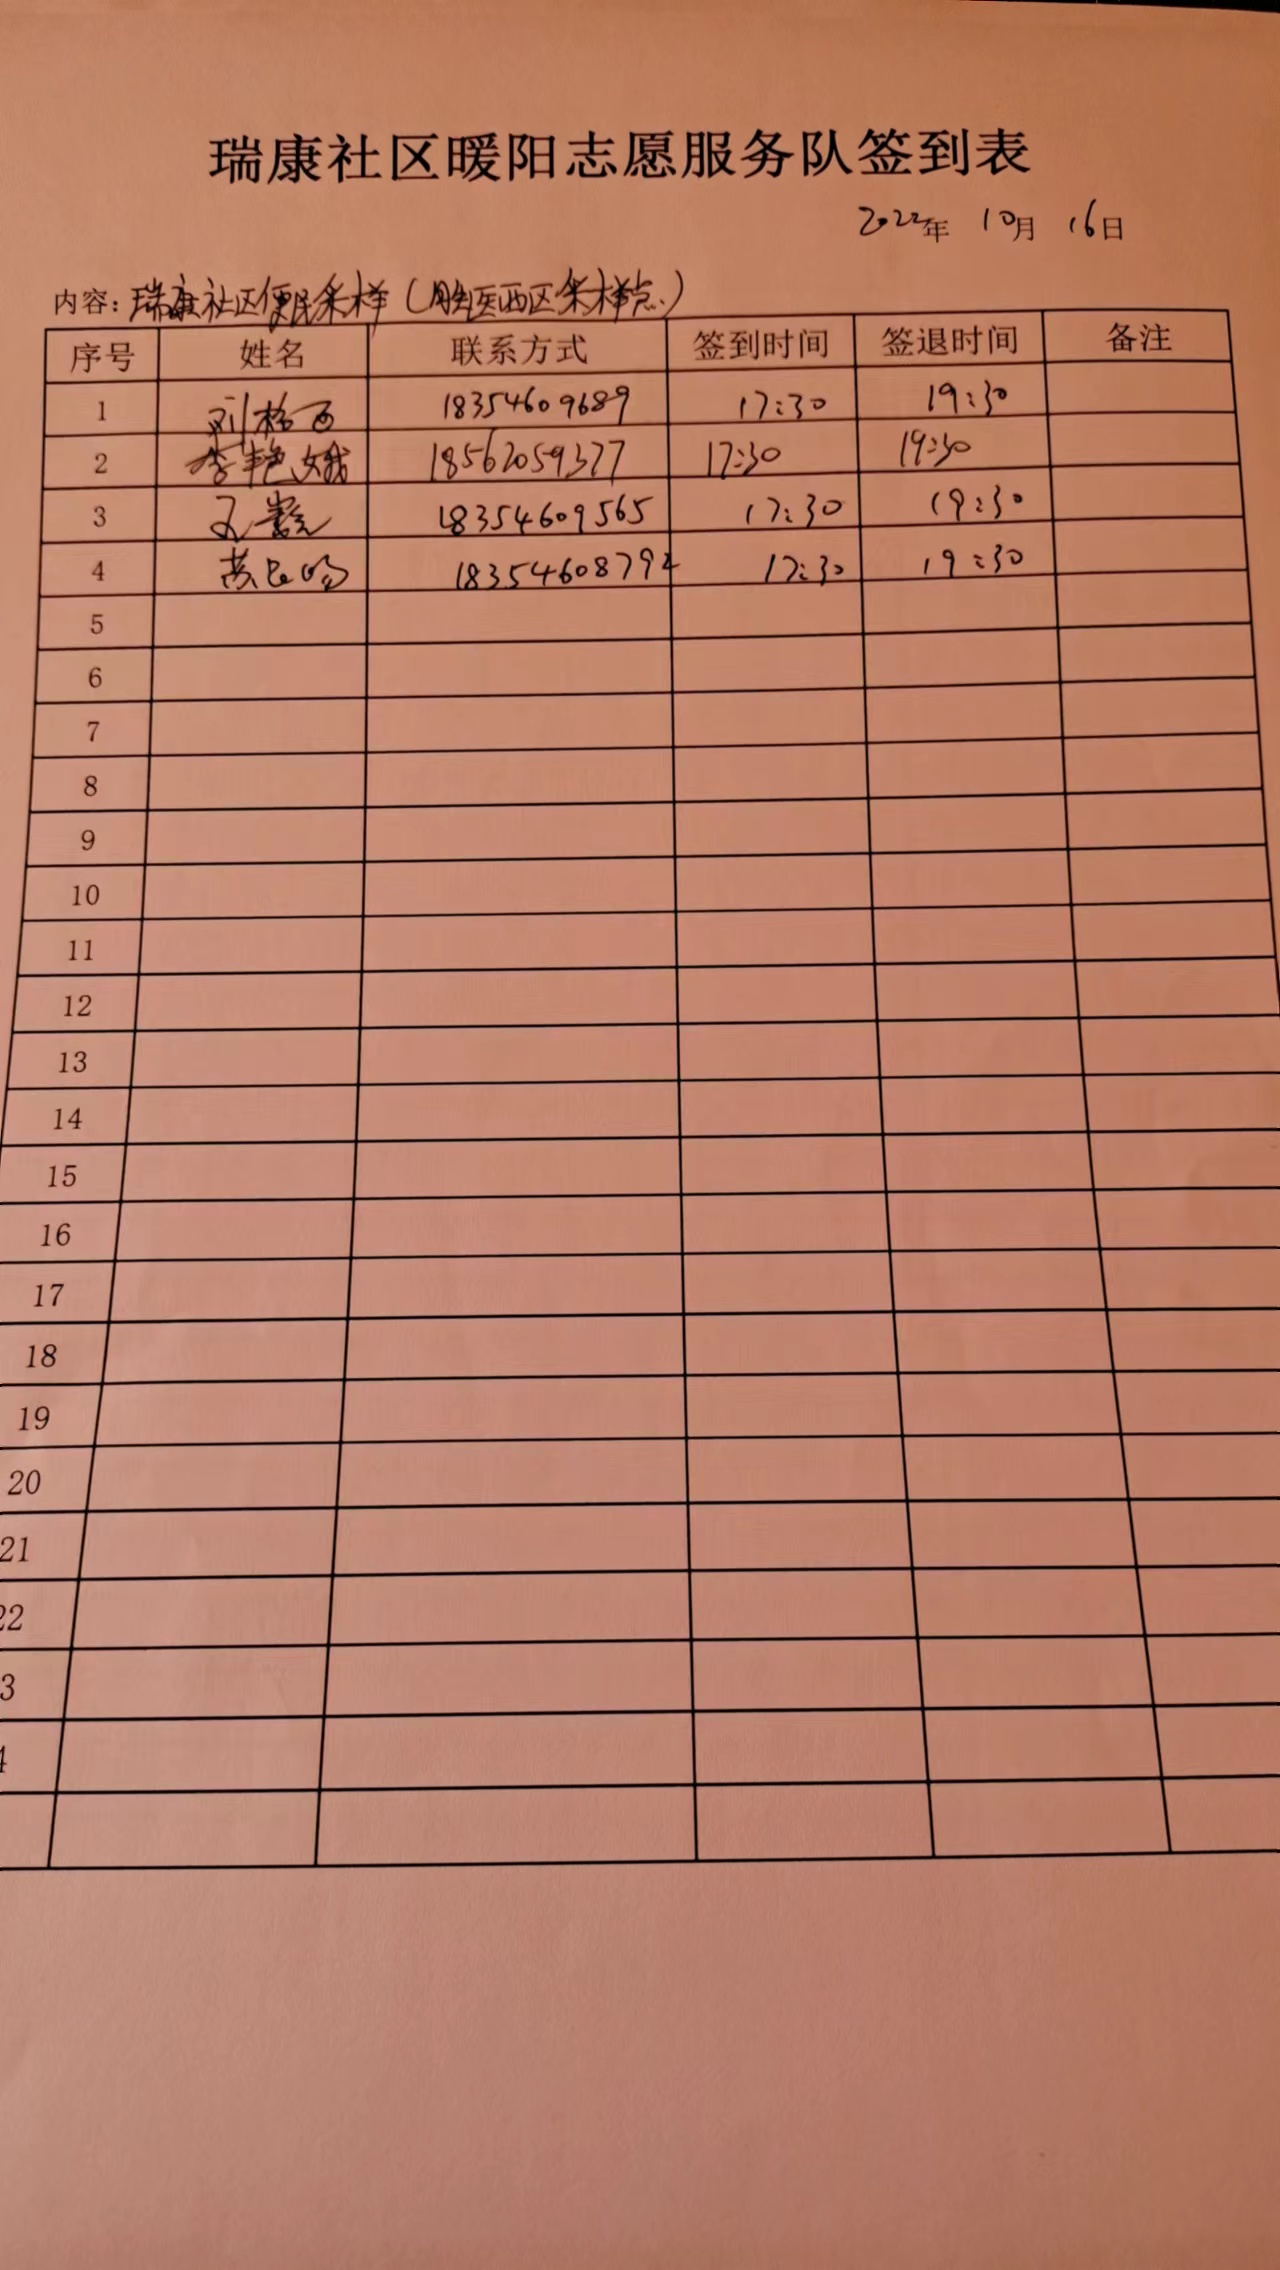 瑞康社区暖阳志愿服务队签到表
2022年 10月 16日
内容：瑞康社区便民采样（胜医西区采样点）
序号 姓名 联系方式 签到时间 签退时间 备注
1 刘格西 18354609689 17:30 19:30
2 李艳娥 18562059377 17:30 19:30
3 18354609565 17:30 19:30
4 18354608792 17:30 19:30
5
6
7
8
9
10
11
12
13
14
15
16
17
18
19
20
21
22
3
4